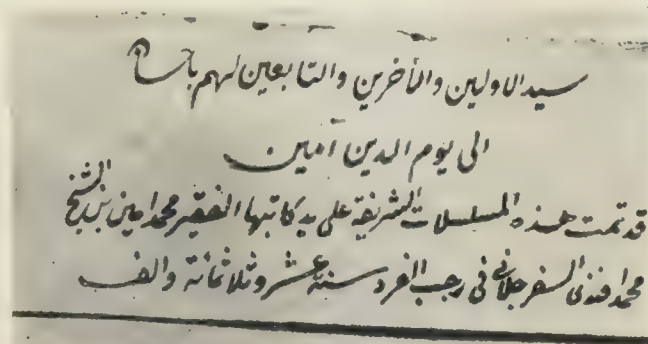 سيد الاولين والآخرين والتابعين لهم باحسان
الى يوم الدين آمين
قد تمت هذه المسلسلات الشريفة على يد كاتبها الفقير محمد امين بن الشيخ
محمد افندى السفرجلانى فى رجب الفرد سنة عشر وثلاثمائة والف